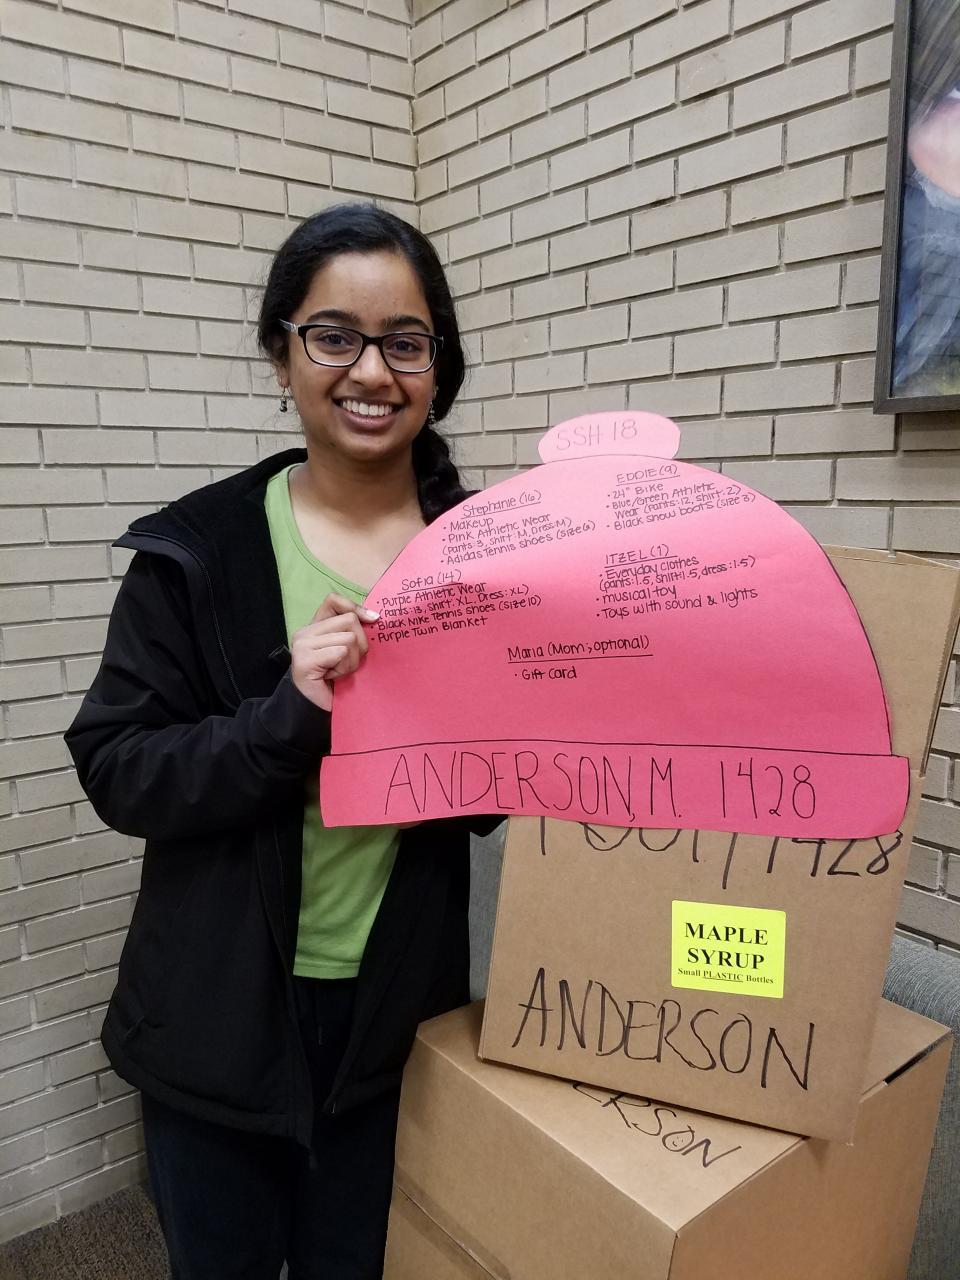 SSH-18
Stephanie (16)
• Makeup
• Pink Athletic Wear
(pants: 3, shirt: M, Dress: M)
• Adidas Tennis Shoes (size 6)
EDDIE (9)
• 24" Bike
• Blue/Green Athletic
Wear (pants: 12, shirt: 2)
• Black snow boots (size 3)
Sofia (14)
• Purple Athletic Wear
(pants: 13, shirt: XL, Dress: XL)
• Black Nike Tennis Shoes (size 10)
• Purple Twin Blanket
ITZEL (1)
• Everyday clothes
(pants: 1.5, shirt: 1.5, dress: 1.5)
• musical toy
• Toys with sound & lights
Maria (Mom; optional)
• Gift card
ANDERSON, M. 1428
1428
MAPLE
SYRUP
Small PLASTIC Bottles
ANDERSON
ERSON